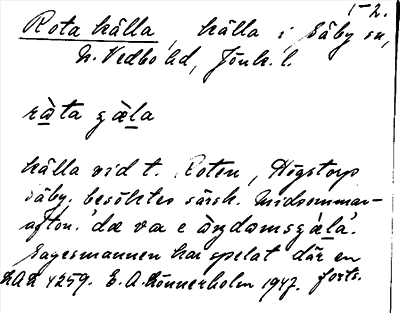 1-2.
Rota källa, källa i Säby sn,
N. Vedbo hd, Jönk. l.
ràta gæ̀la
källa vid t. Roten, Högstorp
Säby. besöktes särsk. midsommar-
afton. 'dæ va e òŋdomsgæ̀la'.
Sagesmannen har spelat där en
forts.
KAK 4259. E. A. Könnerholm 1947.